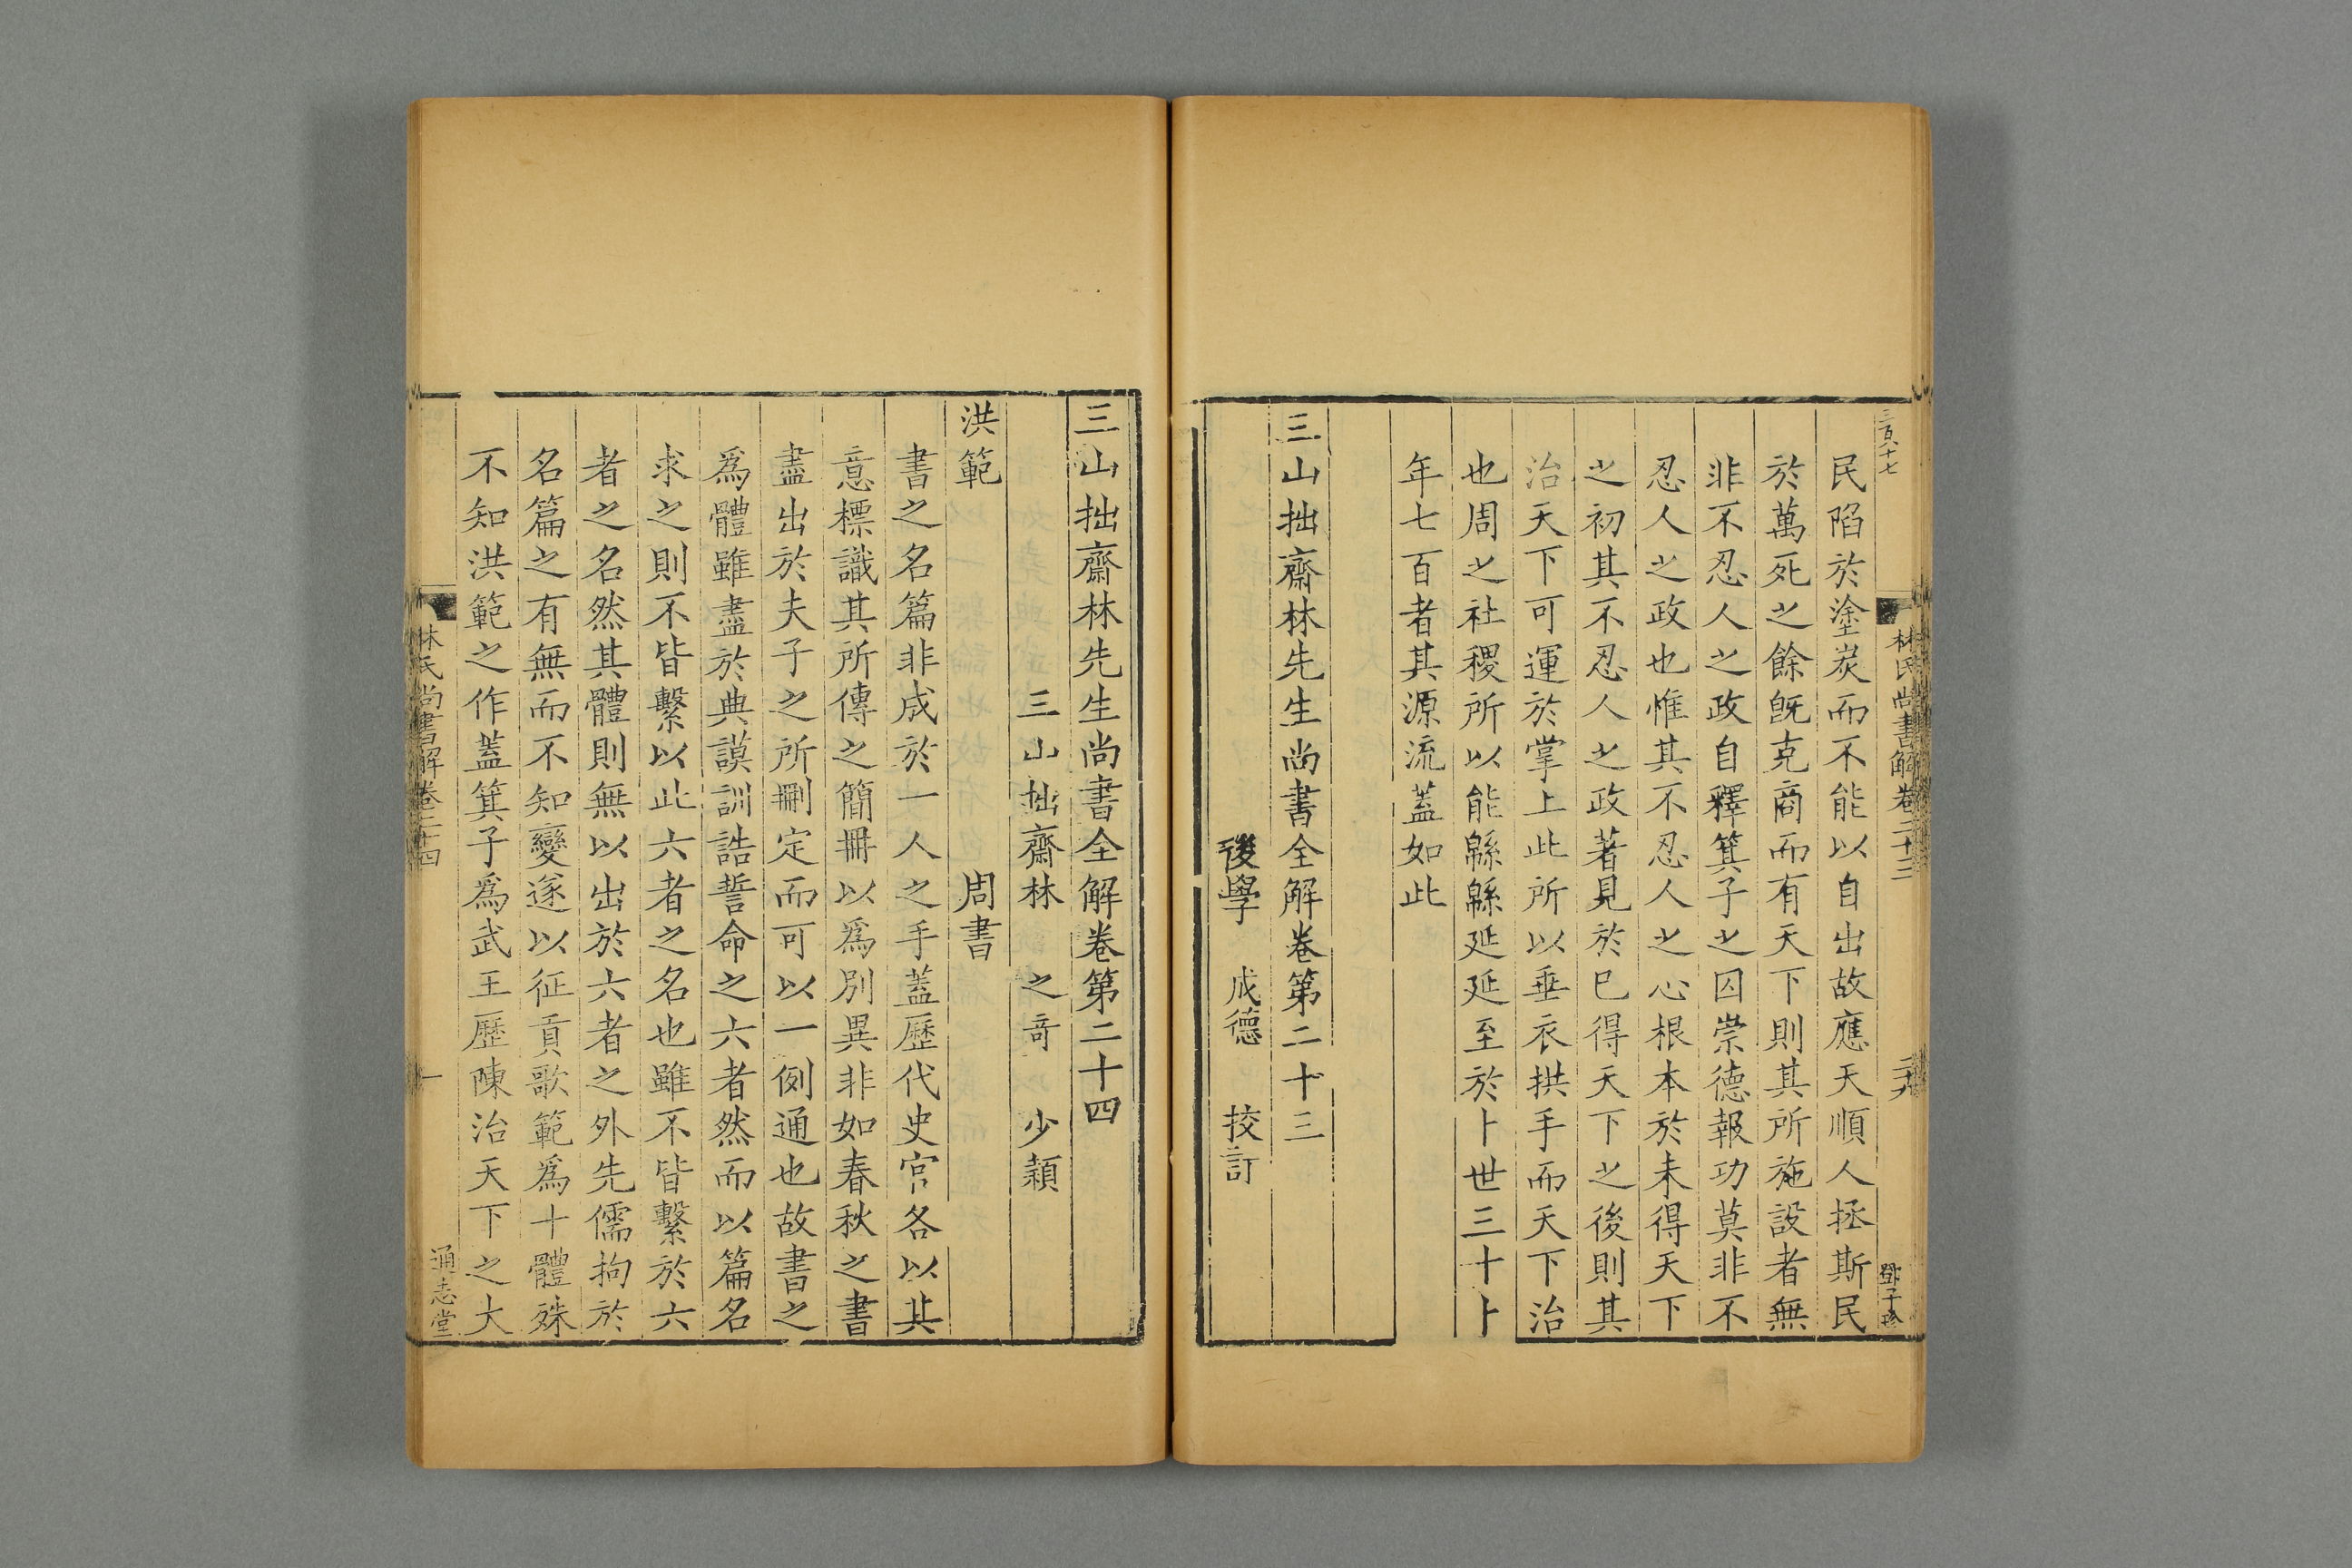 三百十七
林氏尚書解卷二十三
二十九
鄧子珍
民陷於塗炭而不能以自出故應天順人拯斯民
於萬死之餘旣克商而有天下則其所施設者無
非不忍人之政自釋箕子之囚崇德報功莫非不
忍人之政也惟其不忍人之心根本於未得天下
之初其不忍人之政著見於已得天下之後則其
治天下可運於掌上此所以垂衣拱手而天下治
也周之社稷所以能緜緜延延至於卜世三十卜
年七百者其源流蓋如此
三山拙齋林先生尚書全解卷第二十三
後學 成德 挍訂
三山拙齋林先生尚書全解卷第二十四
三山拙齋林 之奇 少穎
洪範 周書
書之名篇非成於一人之手蓋歷代史官各以其
意標識其所傳之簡冊以爲別異非如春秋之書
盡出於夫子之所刪定而可以一例通也故書之
爲體雖盡於典謨訓誥誓命之六者然而以篇名
求之則不皆繫以此六者之名也雖不皆繫於六
者之名然其體則無以出於六者之外先儒拘於
名篇之有無而不知變遂以征貢歌範爲十體殊
不知洪範之作蓋箕子爲武王歷陳治天下之大
林氏尚書解卷二十四
一
通志堂